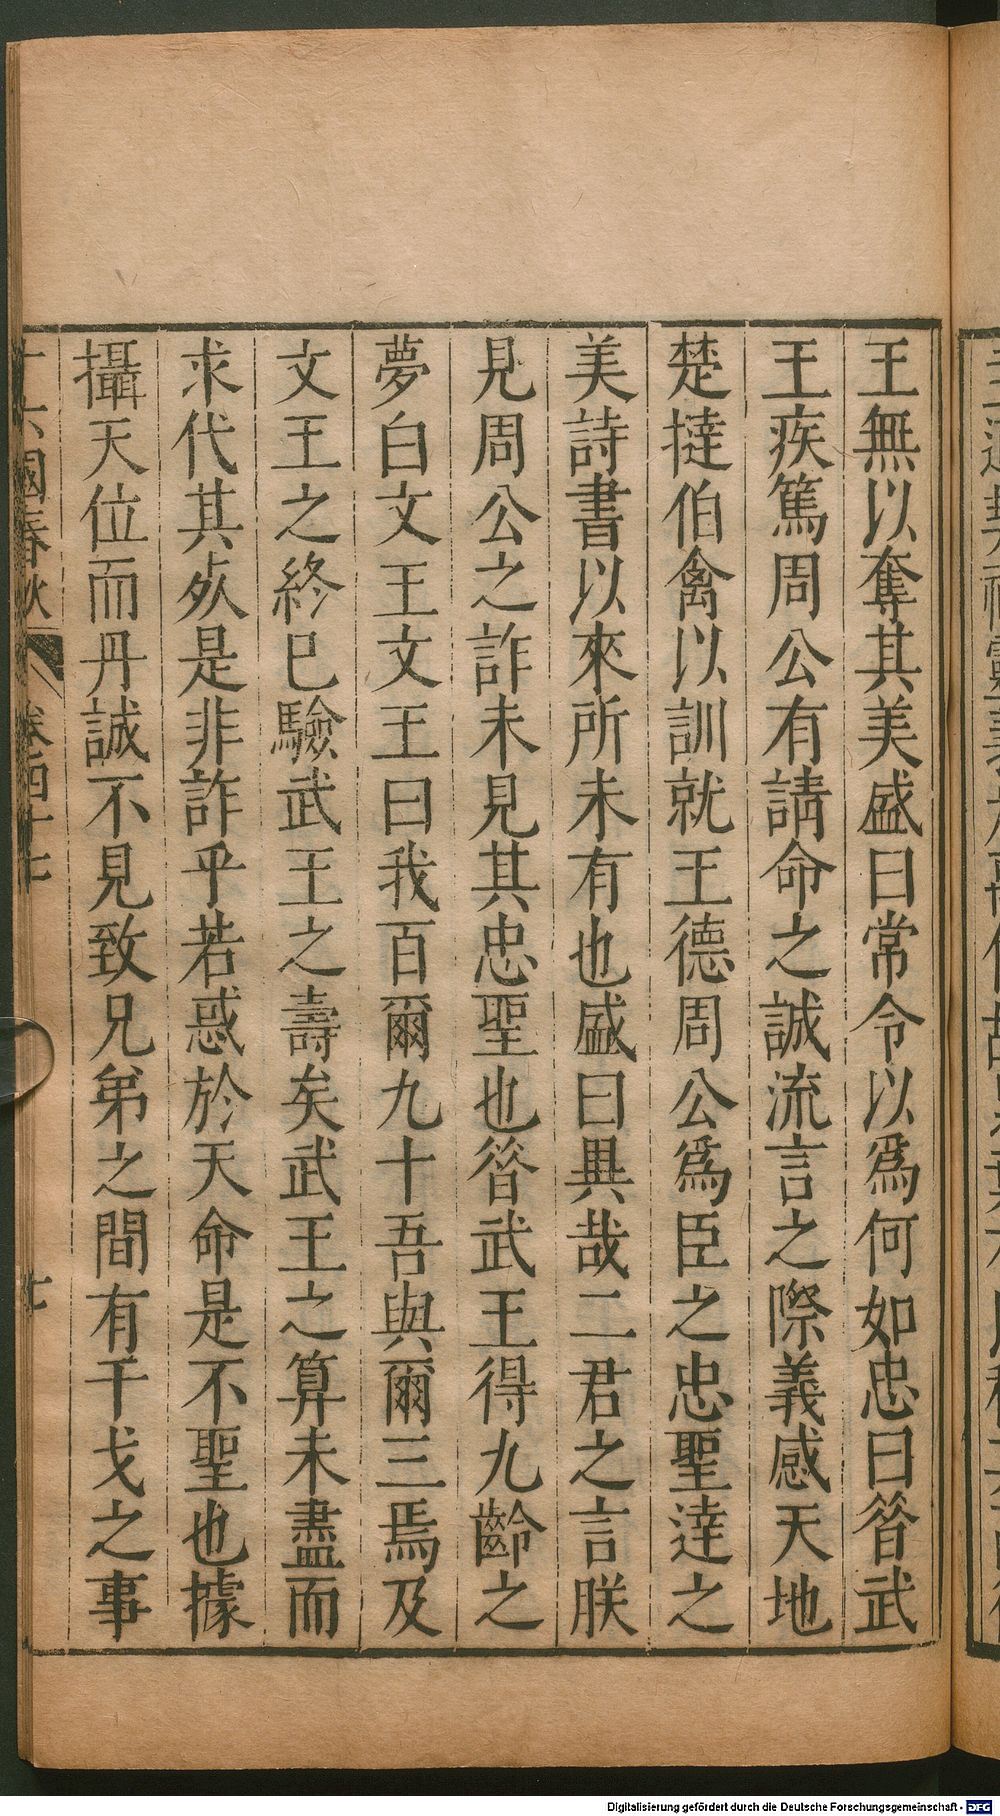 王無以奪其美盛曰常令以爲何如忠曰昝武
王疾篤周公有請命之誠流言之際義感天地
楚撻伯禽以訓就王德周公爲臣之忠聖達之
美詩書以來所未有也盛曰異哉二君之言朕
見周公之詐未見其忠聖也昝武王得九齡之
夢白文王文王曰我百爾九十吾與爾三焉及
文王之終已驗武王之壽矣武王之算未盡而
求代其死是非詐乎若惑於天命是不聖也據
攝天位而丹誠不見致兄弟之間有干戈之事
六國春秋 卷四十七 七
Digitalisierung gefördert durch die Deutsche Forschungsgemeinschaft - DFG